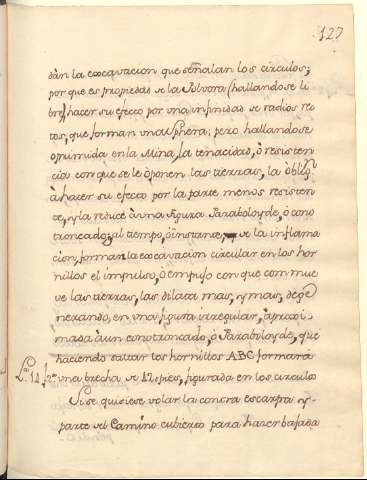 127
dàn la excavacion que señalan los circulos;
por que es propiedad de la Polvora (hallandose li
bre) hacer su efecto por una infinidad de radios rec
tos, que forman una Sphera; pero hallandose
oprimida en la Mina, la tenacidad, ò resisten
cia con que se le òponen las tierras, la òbliga
à hacer su efecto por la parte menos resisten
te, y la reduce à una figura Paraboloyde, ò cono
troncado; al tiempo, ò instante, de la inflama
cion, forman la excavacion circular en los hor
nillos el impulso, ò empujo con que conmue
ve las tierras, las dilata mas, y mas, dege
nerando, en una figura irregular, àproxi
mada àun conotroncado, ò Paraboloyde, que
haciendo saltar los hornillos ABC formarà
una brecha de 12 pies, figurada en los circulos
Si se quisiese volar la contra escarpa y
parte del Camino cubierto para hazer bajada